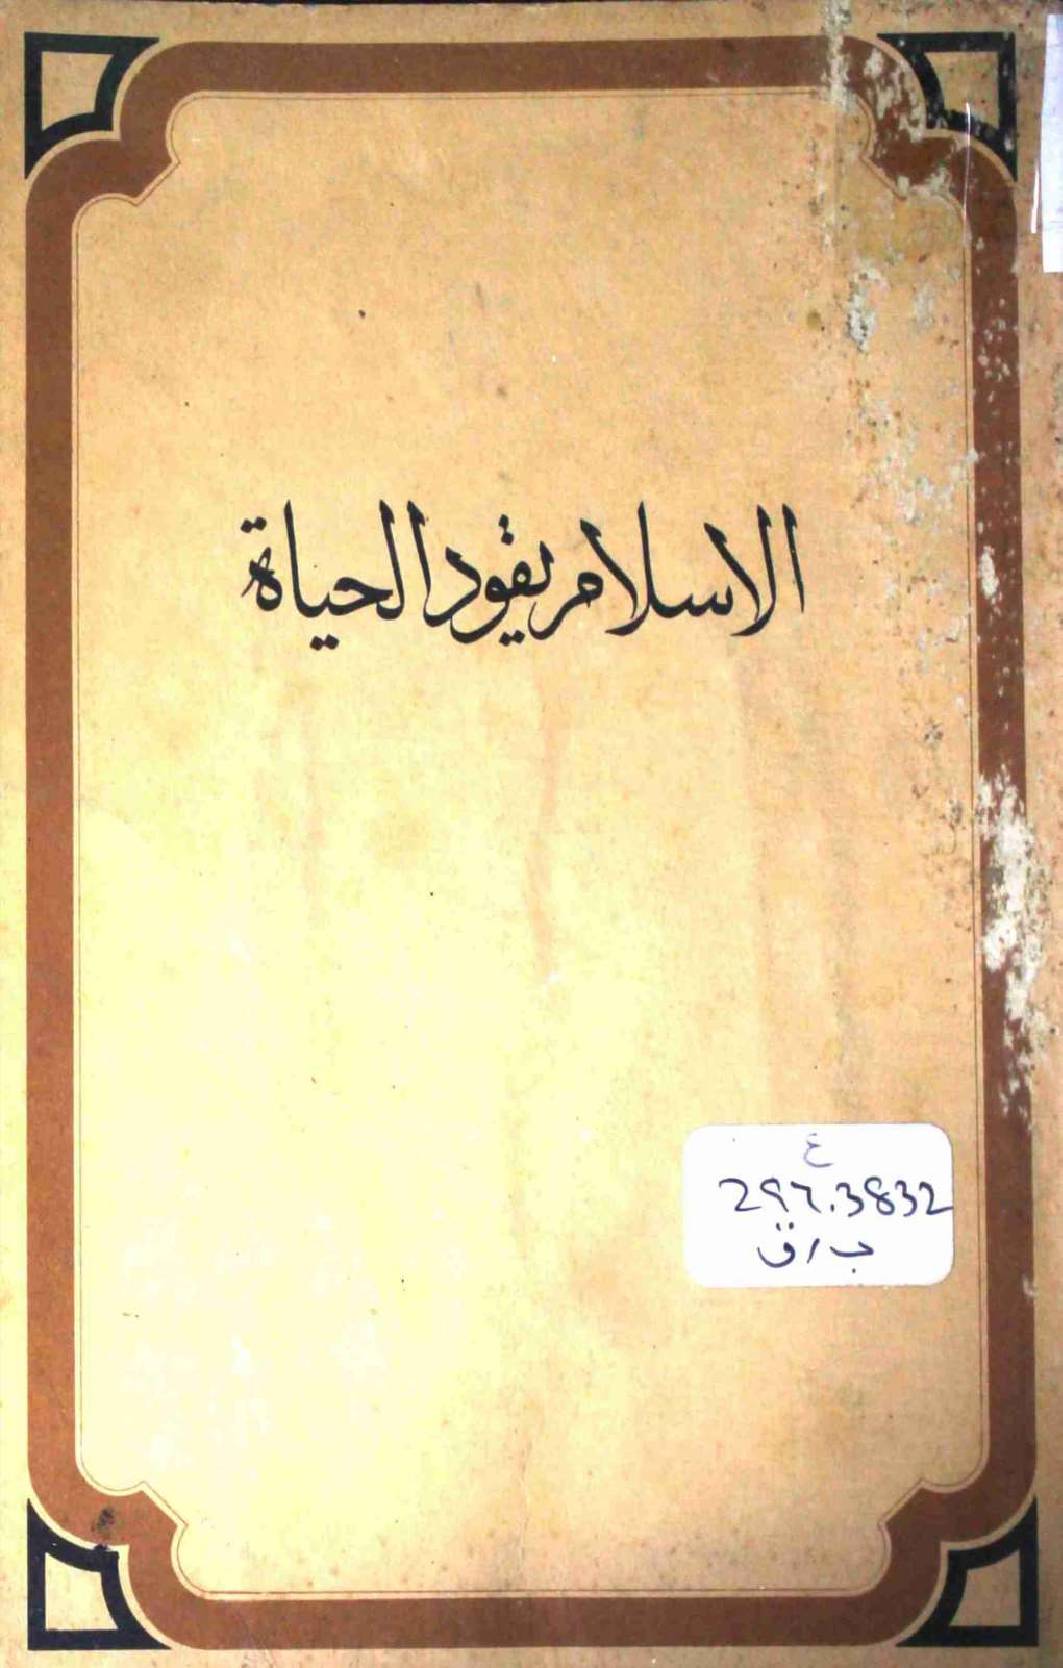 الاسلام يقود الحياة
ع
297.3832
ب/ق